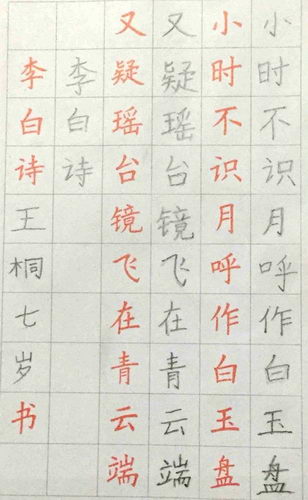 小时不识月呼作白玉盘
小时不识月呼作白玉盘
又疑瑶台镜飞在青云端
又疑瑶台镜飞在青云端
李白诗
李白诗王桐七岁书